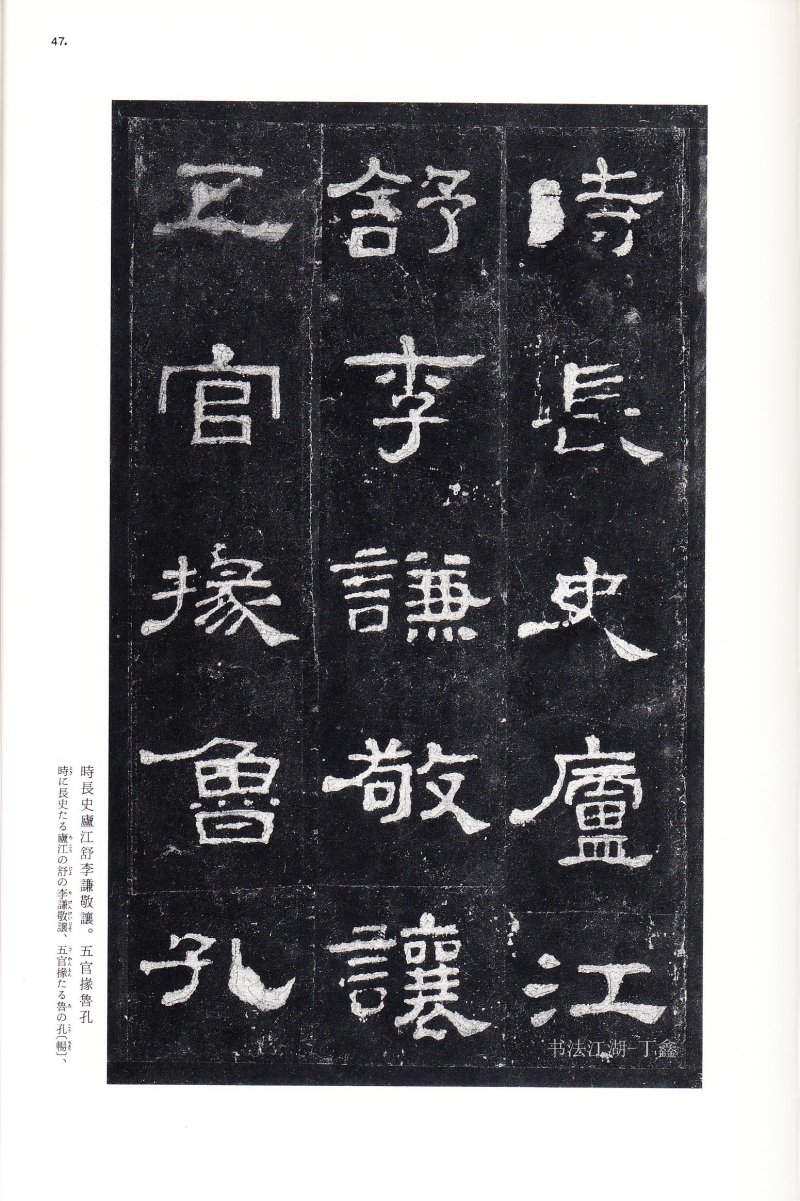 47.
時長史廬江
舒李謙敬讓
五官掾魯孔
书法江湖-丁鑫
時長史廬江舒李謙敬讓。五官掾魯孔
時に長史たる廬江の舒の李謙敬讓、五官掾たる魯の孔〔暢〕、